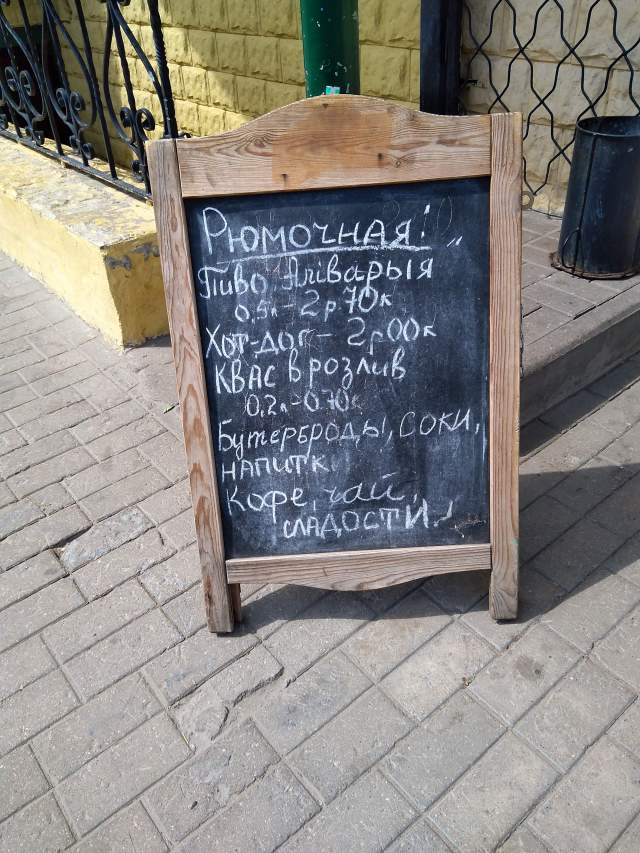 Рюмочная!
Пиво „Аліварыя"
0,5л - 2р 70к
Хот-дог - 2р00к
Квас в розлив
0,2л-0.70к
Бутерброды, соки,
напитк
Кофе, чай,
сладости!